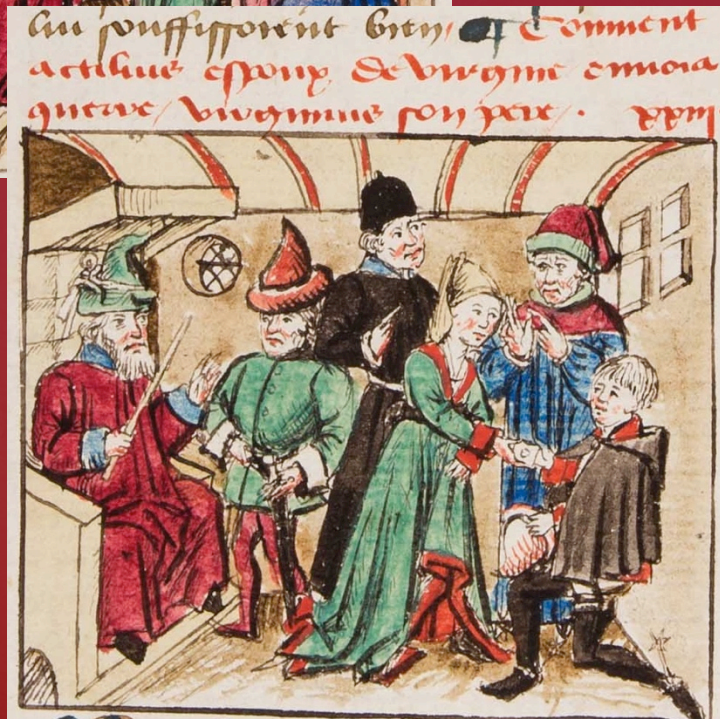 lui souffissoient bien Comment
actilius espoux de virgine enuoia
querre virginius son pere . xxiii